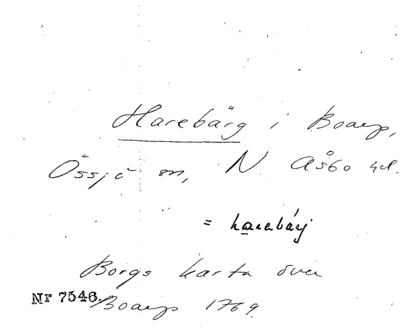 Harebärg i Boarp,
Össjö sn, N. Åsbo hd.
= harabárj
Borgs karta över
Nr 7546. Boarp 1769.